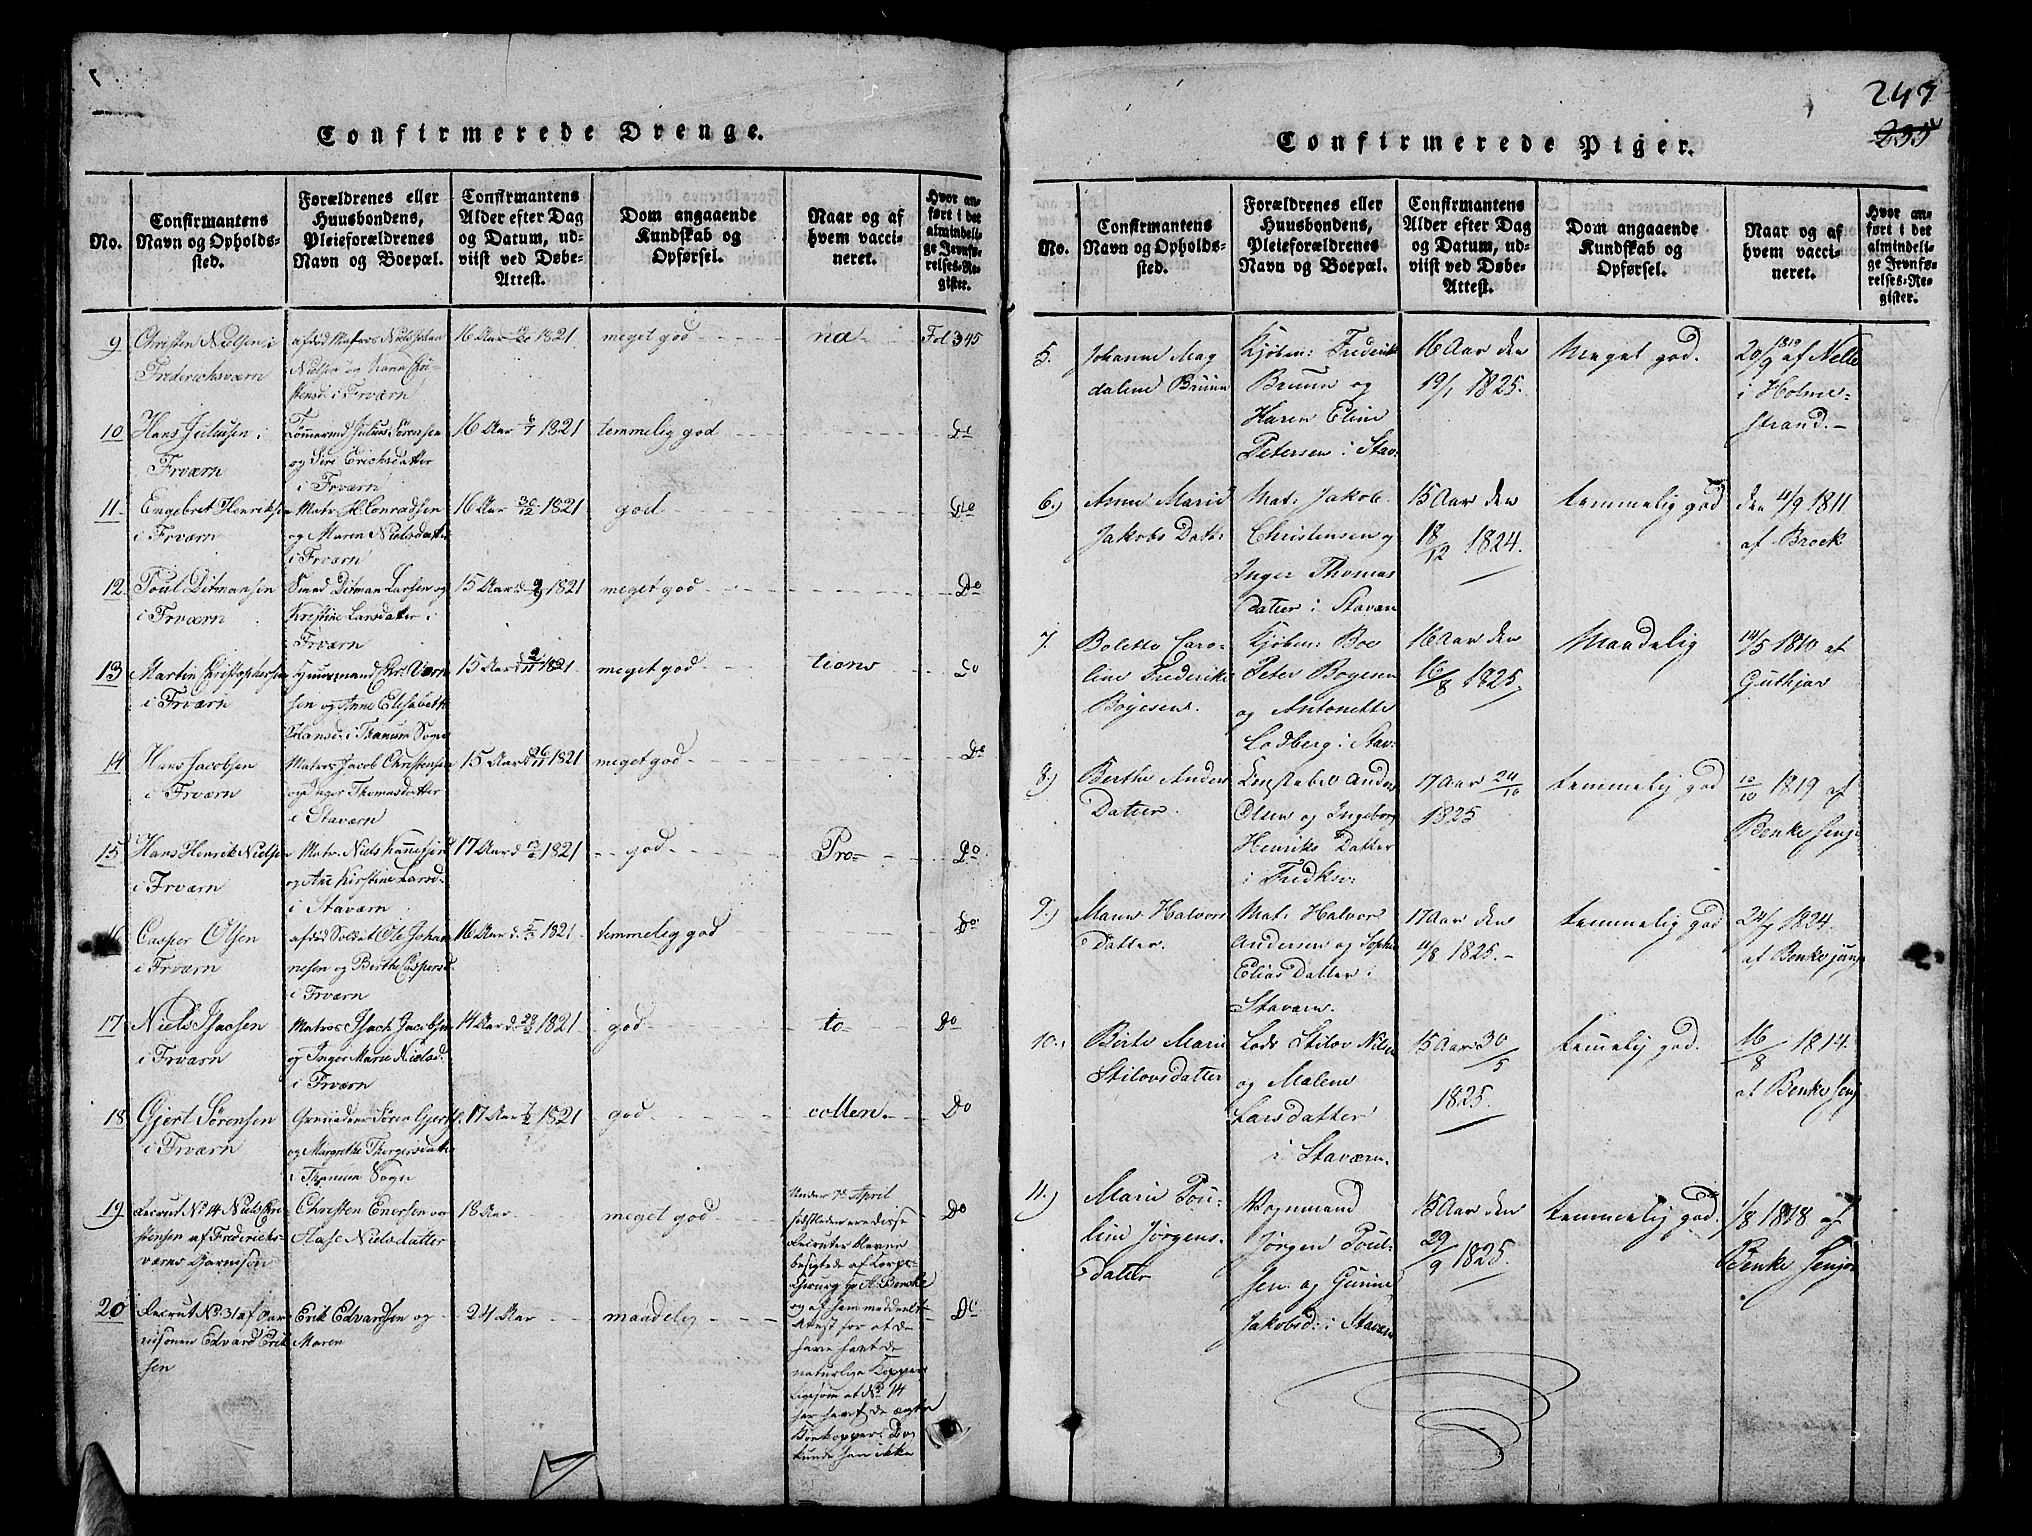 247
235
Confirmerede Drenge.
No.
Confirmantens
Navn og Opholds-
sted.
Forældrenes eller
Huusbondens,
Pleieforældrenes
Navn og Boepæl.
Confirmantens
Alder efter Dag
og Datum, ud-
viist ved Døbe-
Attest.
Dom angaaende
Kundskab og
Opførsel.
Naar og af
hvem vacci-
neret.
Hvor an-
ført i det
almindeli-
ge Jevnfø-
relses-Re-
gister.
9
Christen Nielsen i
Frederichsværn
afdød Matros Niels Johan
Nielsen og Karen Chri-
stensd: i Frværn
16 Aar 1821
meget god
na
Fol 345
10
Hans Juliusen i
Frværn
Tømmermd Julius Sørensen
og Siri Erichsdatter
i Frværn
16 Aar 6/7 1821
temmelig god
Do
11
Engebret Henriksen
i Frværn
Matr. H. Conradsen
og Maren Nielsdatter
i Frværn
16 Aar 30/12 1821
god
Do
12
Poul Ditmansen
i Frværn
Smed Ditman Larsen og
Kirstine Larsdatter i
Frværn
15 Aar d. 1821
meget god
Do
13
Martin Christophersen
i Frværn
Huusmand Chr. Værn
sen og Anne Elisabeth
Hansd: i Thanum Sogn
15 Aar d 2/11 1821
meget god
tions
Do
14
Hans Jacobsen
i Frværn
Matros Jacob Christensen
og Inger Thomasdatter
i Staværn
15 Aar d 26/11 1821
meget god
Do
15
Hans Henrik Nielsen
i Frværn
Matr. Niels
og Ane Kirstine Larsd.
i Staværn
17 Aar d 1821
god
Pro
Do
16
Casper Olsen
i Frværn
afdød Soldat Ole Johan
nesen og Berthe Caspersd.
i Frværn
16 Aar d. 1821
temmelig god
Do
17
Niels Isacsen
i Frværn
Matros Isach Jacobsen
og Inger Marie Nielsd.
i Frværn
14 Aar d. 1821
god
to
Do
18
Gjert Sørensen
i Frværn
Grenadeer Søren Gjerts.
og Margrethe Thorgersdatter
i Thanum Sogn
17 Aar 7/2 1821
god
collen
Do
19
Recrud No 14 Niels Chri
stensen af Frederichs-
værns Garnison
Christen Enersen og
Hase Nielsdatter
18 Aar
meget god
Under 7de April
sidstleden ere disse
Recruter blevne
besigtede af Corps-
Chirurg Hr A. Bencke
og af ham meddeelt
Attest for at de
have havt de
naturlige Kopper
ligesom at No 14
har havt de ægte
Børekopper. Do
kunde han ikke
Do
20
Recrut No 31 af Gar
nisonen Edvard Erik
sen
Erik Edvardsen og
Maren
24 Aar
maadelig
Do
Confirmerede Piger.
No.
Confirmantens
Navn og Opholds-
sted.
Forældrenes eller
Huusbondens,
Pleieforældrenes
Navn og Boepæl.
Confirmantens
Alder efter Dag
og Datum, ud-
viist ved Døbe-
Attest.
Dom angaaende
Kundskab og
Opførsel.
Naar og af
hvem vacci-
neret.
Hvor an-
ført i det
almindeli-
ge Jevnfø-
relses-Re-
gister.
5.
Johanne Mag
dalene Bruun
Kjøbm: Frederik
Bruun og
Karen Eline
Petersen i Stav:
16 Aar den
19/1 1825.
Meget god.
20/9 1819 af Nelle
i Holme-
strand.
6.)
Anne Marie
Jakobs Datter
Mat: Jakob
Christensen og
Inger Thomas
Datter i Staværn
15 Aar den
18/12 1824.
temmelig god
den 4/9 1811
af Brock
7.
Bolette Caro-
line Frederikke
Bøyesen.
Kjøbm: Boe
Peter Boyesen
og Antonette
Lodberg i Stav:
16 Aar den
16/8 1825.
Maadelig
14/5 1810 af
Guthjar
8.)
Berthe Anders
Datter.
Constabel Anders
Olsen og Ingeborg
Henriks Datter
i Fredksv:
17 Aar 24/10
1825
temmelig god
12/10 1819 af
Benke Senj:
9.)
Maren Halvors
Datter.
Mat: Halvor
Andersen og Sophie
Elias Datter i
Staværn.
17 Aar den
11/8 1825.
temmelig god
24/7 1824.
af Benke jun:
10.
Birte Marie
Stilovsdatter
Lods Stilov Nilsen
og Malene
Larsdatter
i Staværn.
15 Aar 30/5
1825.
temmelig god.
16/8 1814.
af Benke Senj
11.)
Marie Pou-
line Jørgens-
Datter
Vognmand
Jørgen Poul-
sen og Gunne
Jakobsd: i Stavern
15 Aar den
29/9 1825.
temmelig god.
1/8 1818 af
Benke Senjor